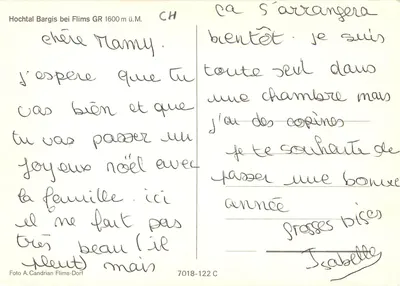 Hochtal Bargis bei Flims GR 1600 m ü.M.
CH
chère Mamy.
j'espère que tu
vas bien et que
tu vas passer un
joyeux noël avec
la famille. ici
il ne fait pas
très beau (il
pleut) mais
ça s'arrangera
bientôt. je suis
toute seul dans
une chambre mais
j'ai des copines
je te souhaite de
passer une bonne
année
grosses bises
Isabelle
Foto A. Candrian Flims-Dorf
7018-122 C